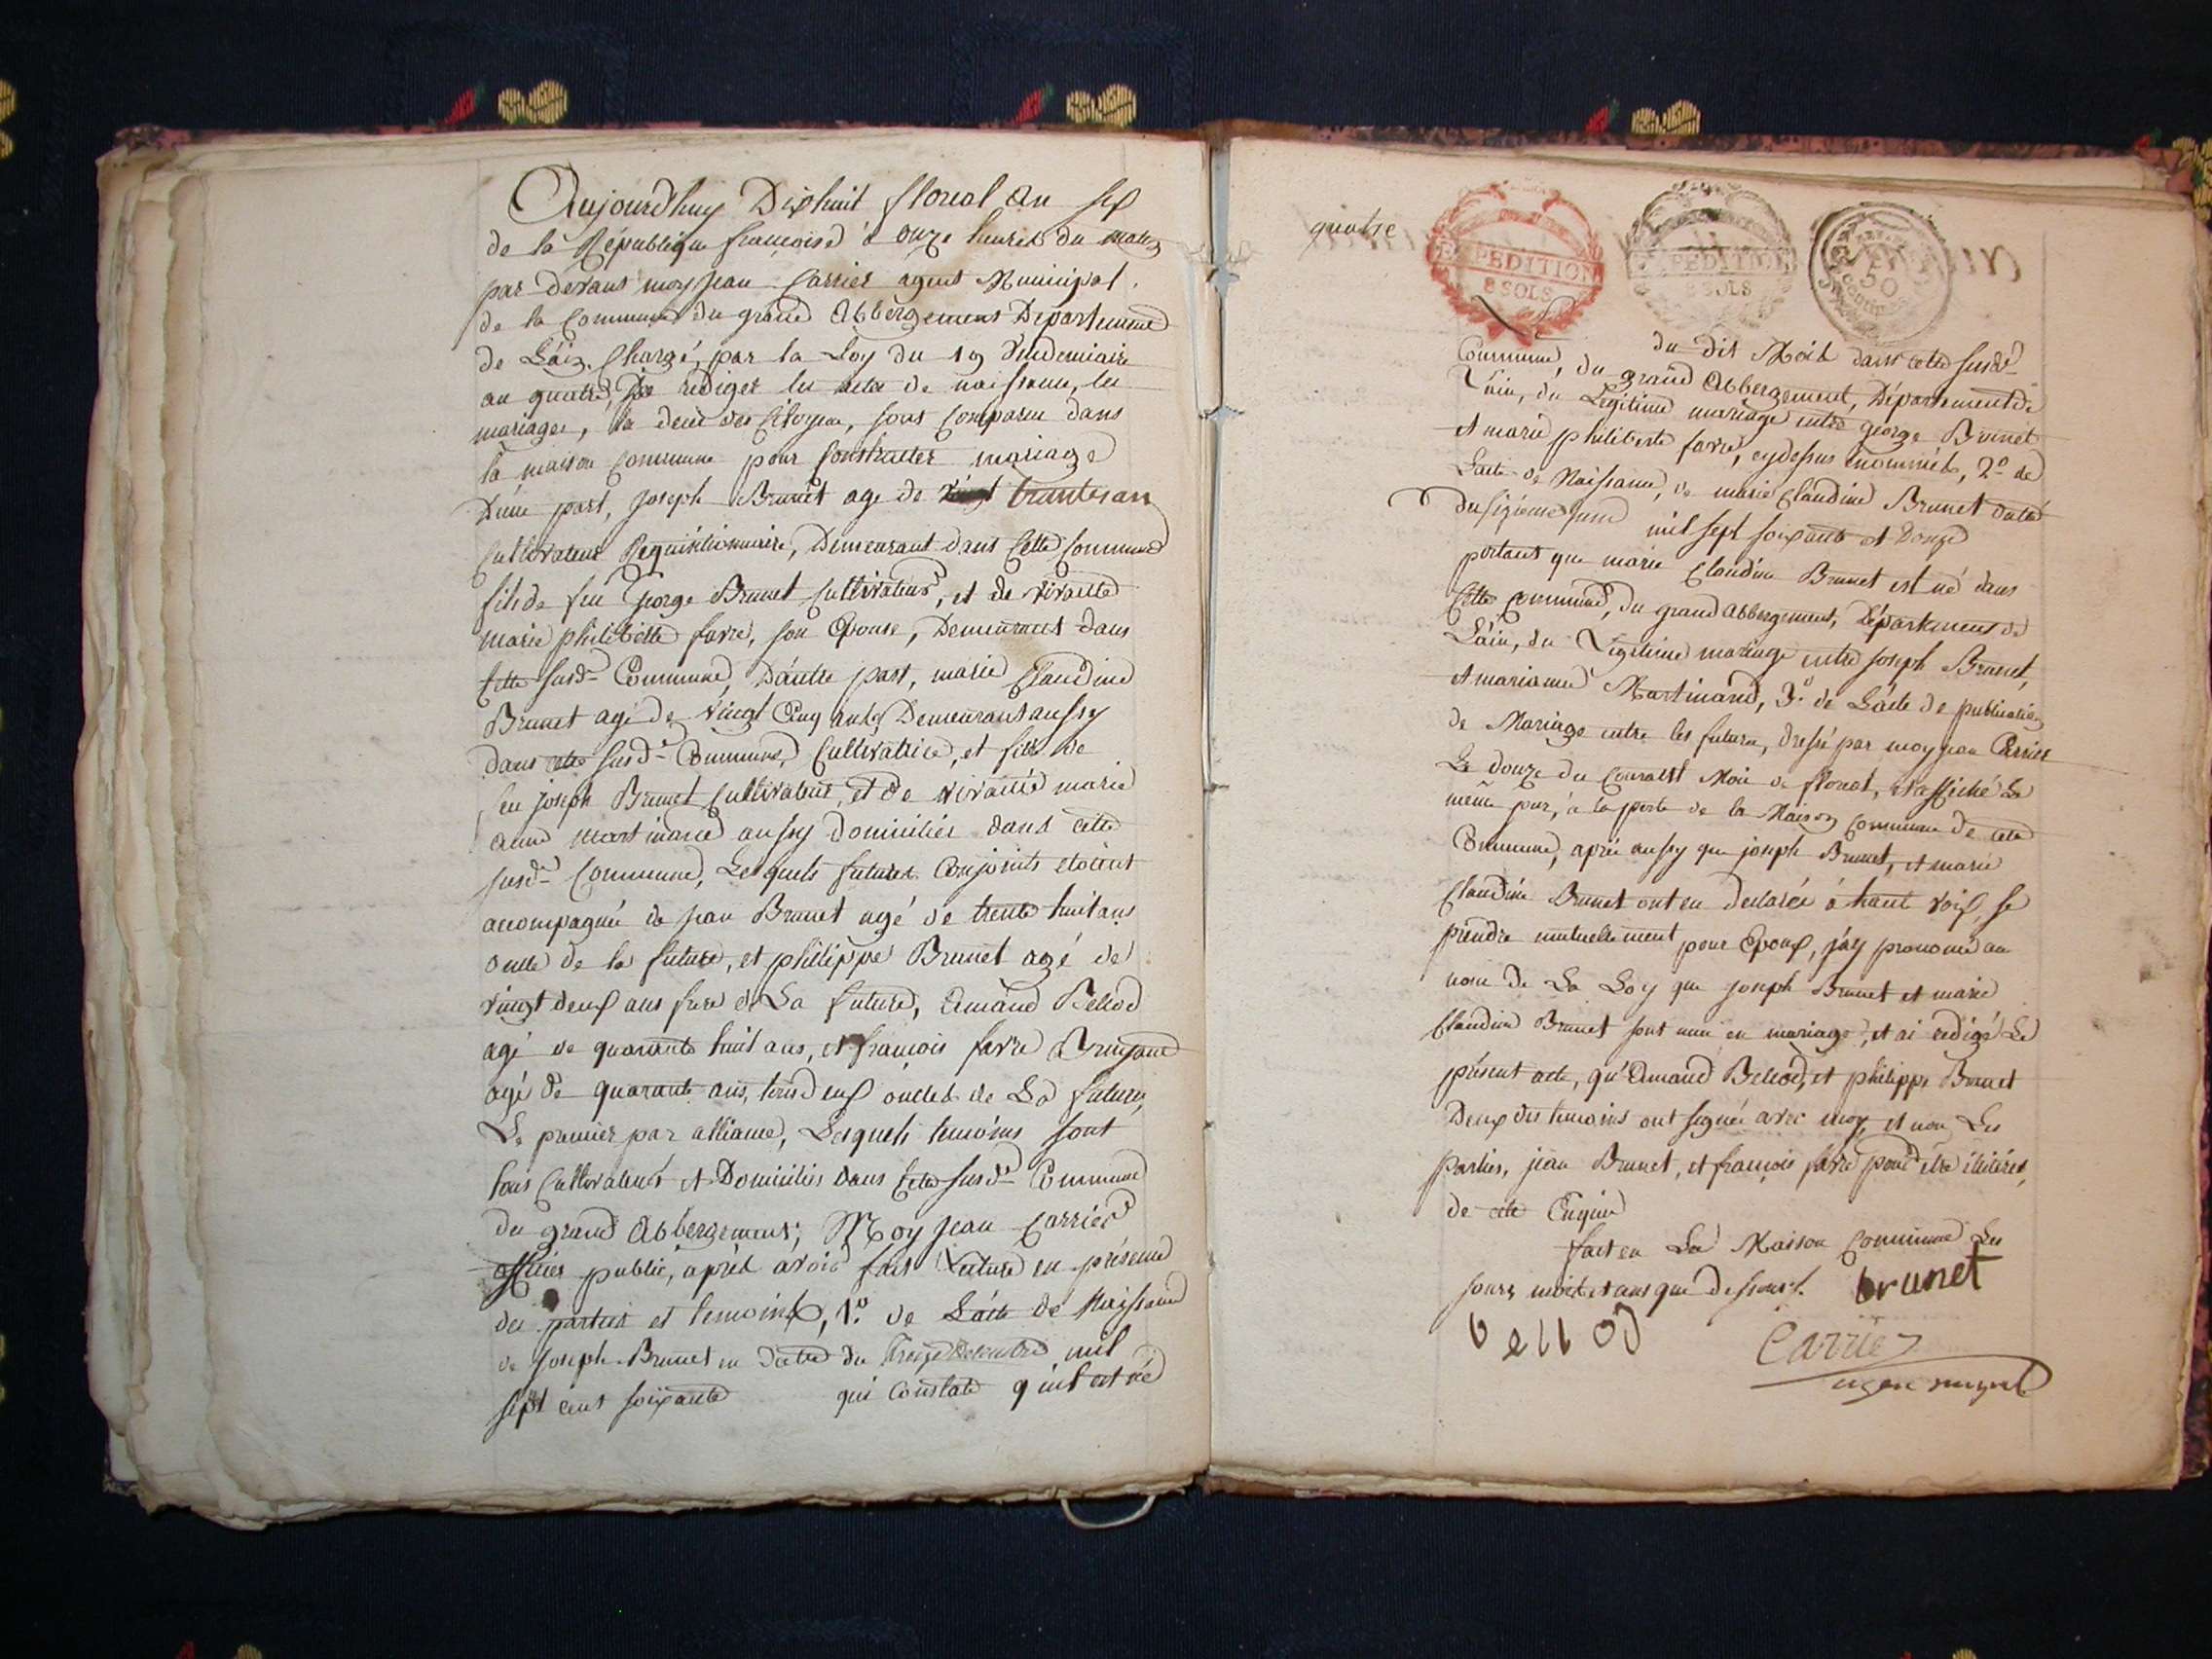 Aujourdhuy Dixhuit floreal an six
de la République françoise à onze heures du matin
par devant moy jean Carrier agent Municipal
de la Commune du grand Abbergement Departement
de L'ain, Chargé, par la Loy du 19 Vendemiaire
an quatre, De rediger les actes de naissance, les
mariages, la decès des Citoyens, sont comparu dans
la maison Commune pour Contracter mariage
D'une part, joseph Brunet age de trentes an
Cultivateur Requisitionnaire, Demeurant dans Cette Commune
fils de feu george Brunet Cultivateur, et de vivante
marie philiberte favre, son Epouse, Demeurant dans
Cette susd. Commune, D'autre part, marie Claudine
Brunet agé de vingt Cinq ants Demeurant aussy
dans cette susd. Commune, Cultivatrice, et fille de
feu joseph Brunet Cultivateur, et de vivante marie
anne Martinand aussy domiciliés dans cette
susd. Commune, Lesquels futures Conjoints etoient
accompagnés de jean Brunet agé de trente huit ans
oncle de la future, et philippe Brunet agé de
vingt deux ans frere de La future, Amand Belliod
agé de quarante huit ans, et françois favre
agé de quarante ans, tous deux oncles de La future,
Le premier par alliance, Lesquels temoins sont
tous Cultivateurs et Domiciliés dans Cette susd. Commune
du grand Abbergement; Moy jean Carrier
officier public, après avoir fait Lecture en présence
des parties et temoins, 1.º de L'acte de Naissance
de joseph Brunet en datte du treize decembre mil
sept cent soixante qui Constate quil est né
quatre
EXPEDITION
8 SOLS
EXPEDITION
8 SOLS
50
du dit Mois dans cette susd.
Commune, du grand Abbergement, Département de
L'ain, du Legitime mariage entre george Brunet
et marie philiberte favre, cydessus énommés, 2.º de
L'acte de Naissance, de marie Claudine Brunet datté
du sixieme mil sept soixante et douze
portant que marie Claudine Brunet est né dans
Cette Commune, du grand abbergement, Département de
L'ain, du Legitime mariage entre joseph Brunet,
et marianne Martinand, 3.º de L'acte de publication
de Mariage entre les futures, dressé par moy jean Carrier
Le douze du Courant Mois de floreal, et affiché Le
même jour, à la porte de la Maison Commune de cette
Commune, après aussy que joseph Brunet, et marie
Claudine Brunet ont eu declarée à haute voix, se
prendre mutuellement pour Epoux, j'ay prononcé au
nom de La Loy que joseph Brunet et marie
Claudine Brunet sont unis en mariage, et ai redigé Le
présent acte, qu'Amand Belliod, et philippe Brunet
Deux des temoins ont signés avec moy, et non Les
parties, jean Brunet, et françois favre pour etre illitérés,
de cette Enquis
fait en La Maison Commune Les
jours, mois et ans que dessus. brunet
belliod
Carrier
agent municipal